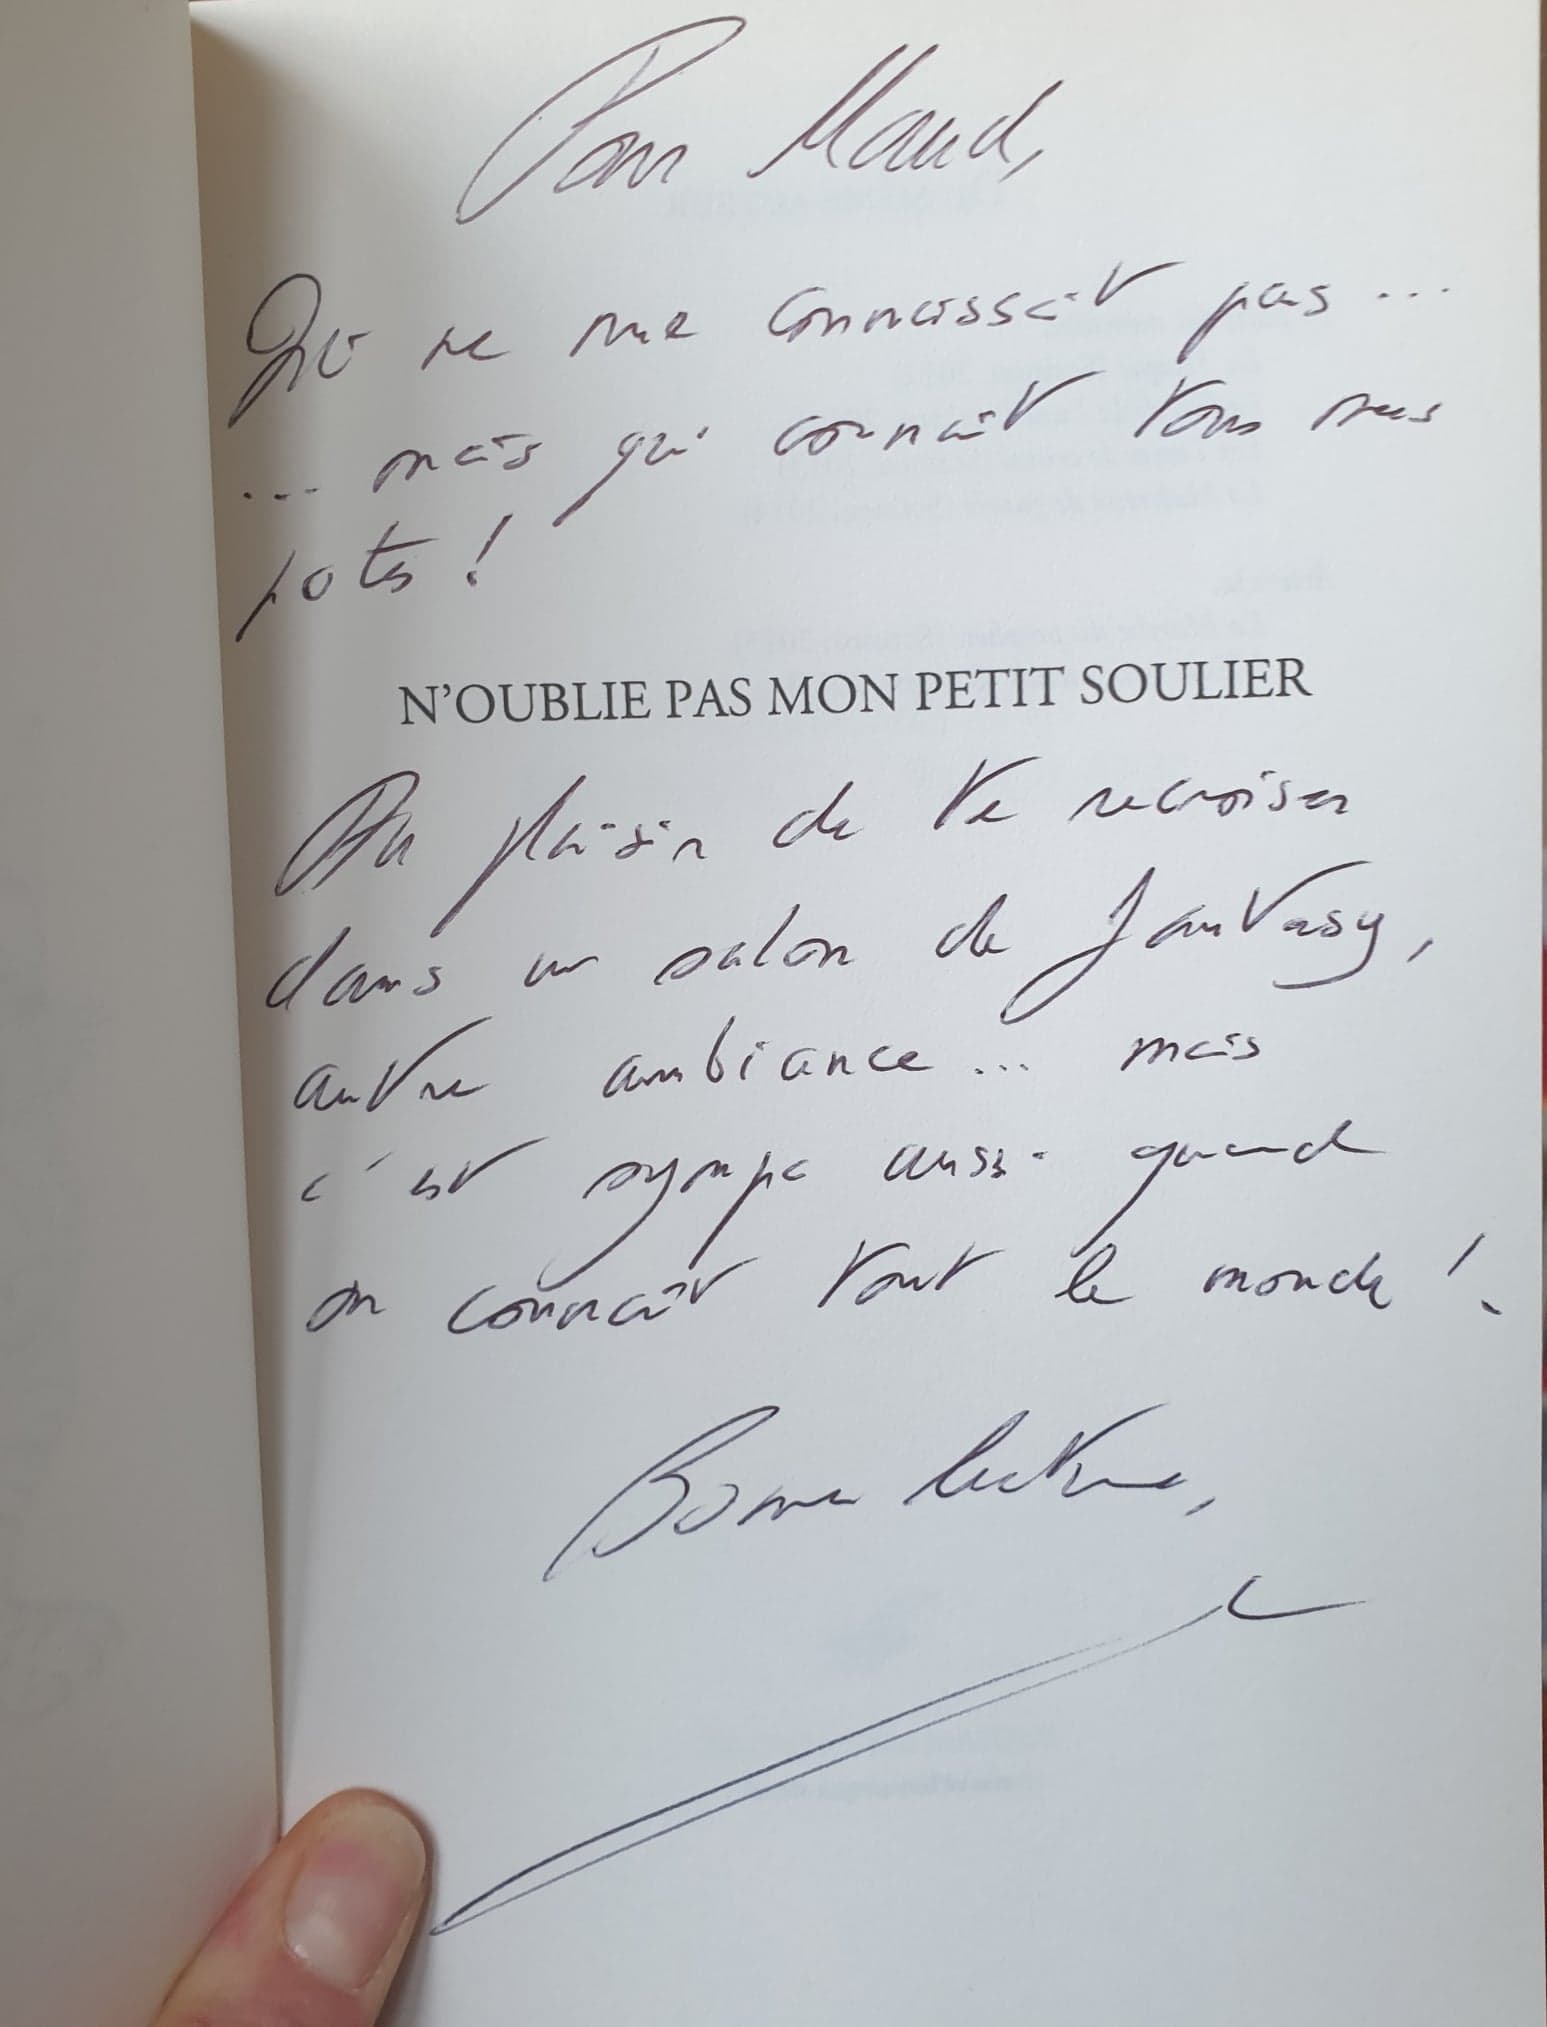 Pour Maud,
Qui ne me connaissait pas ...
... mais qui connaît tous mes
potes !
N'OUBLIE PAS MON PETIT SOULIER
Au plaisir de te recroiser
dans un salon de fantasy,
autre ambiance ... mais
c'est sympa aussi quand
on connaît tout le monde !
Bonne lecture,